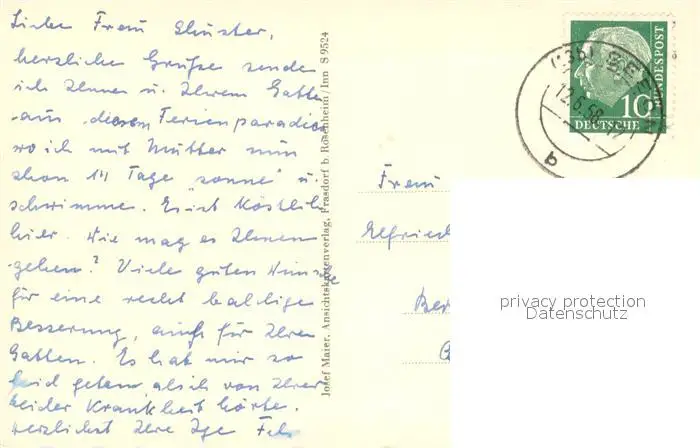 Liebe Frau Schuster,
herzliche Grüße sende
ich Ihnen u. Ihrem Gatten
aus diesem Ferienparadies
wo ich mit Mutter nun
schon 14 Tage "sonne" u.
schwimme. Es ist köstlich
hier. Wie mag es Ihnen
gehen? Viele guten Wünsche
für eine recht baldige
Besserung, auch für Ihren
Gatten. Es hat mir so
leid getan als ich von Ihrer
beider Krankheit hörte.
Herzlichst Ihre Inge
Josef Maier, Ansichtskartenverlag, Frasdorf b. Rosenheim/Inn S 9524
(13b) SEE
12.6.58
a
10
DEUTSCHE
BUNDESPOST
Frau
Elfried
Ber
privacy protection
Datenschutz